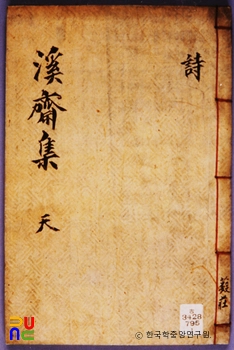 詩
溪齋集 天
3428
795
ⓒ 한국학중앙연구원